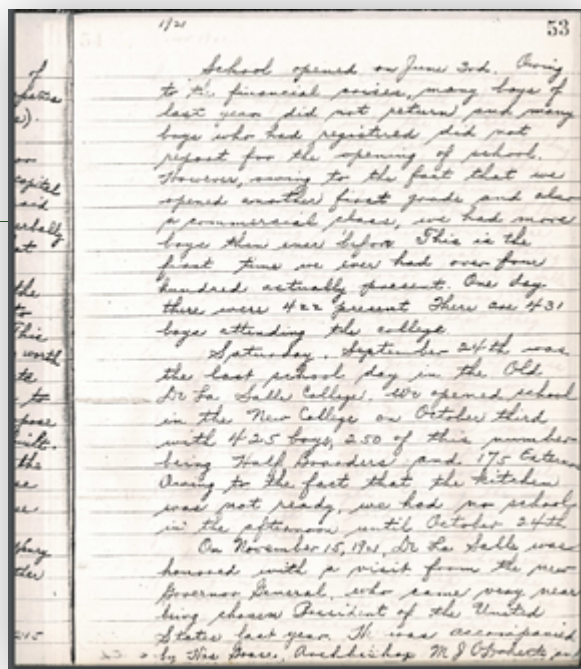 1/21
53
School opened on June 3rd. Owing
to the financial crises, many boys of
last year did not return and many
boys who had registered did not
report for the opening of school.
However, owing to the fact that we
opened another first grade and also
a commercial class, we had more
boys than ever before. This is the
first time we ever had over four
hundred actually present. One day
there were 422 present. There are 431
boys attending the college.
Saturday, September 24th was
the last school day in the Old
De La Salle College. We opened school
in the New College on October third
with 425 boys, 250 of this number
being Half Boarders and 175 Extern
Owing to the fact that the kitchen
was not ready, we had no school
in the afternoon until October 24th
On November 15, 1921, De La Salle was
honored with a visit from the new
Governor General, who came very near
being chosen President of the United
States last year. He was accompanied
by His Grace, Archbishop M J O'Doherty,
of
capital
said
at
the
to
This
worth
to
the
215